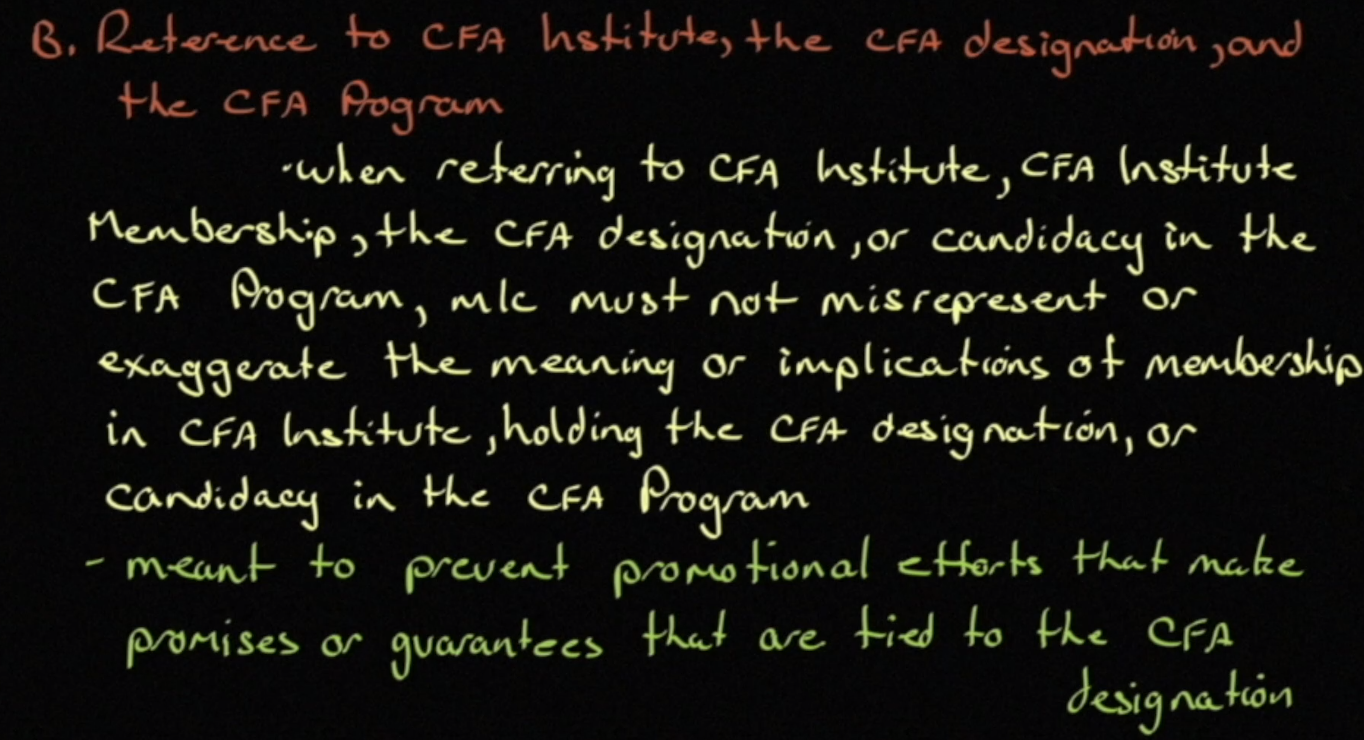 B. Reference to CFA Institute, the CFA designation, and
the CFA Program
·when referring to CFA Institute, CFA Institute
Membership, the CFA designation, or candidacy in the
CFA Program, m/c must not misrepresent or
exaggerate the meaning or implications of membership
in CFA Institute, holding the CFA designation, or
candidacy in the CFA Program
- meant to prevent promotional efforts that make
promises or guarantees that are tied to the CFA
designation